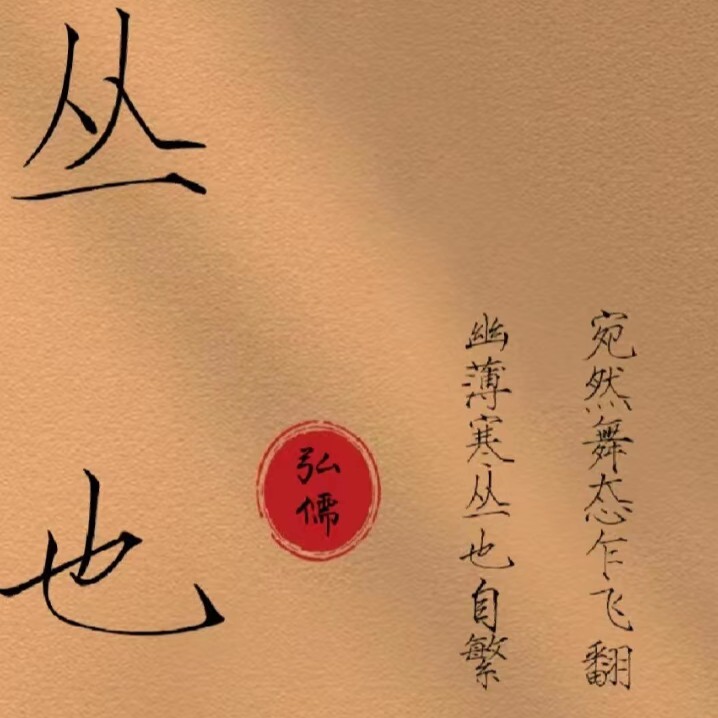 宛然舞态乍飞翻
幽薄寒丛也自繁
弘儒
丛
也